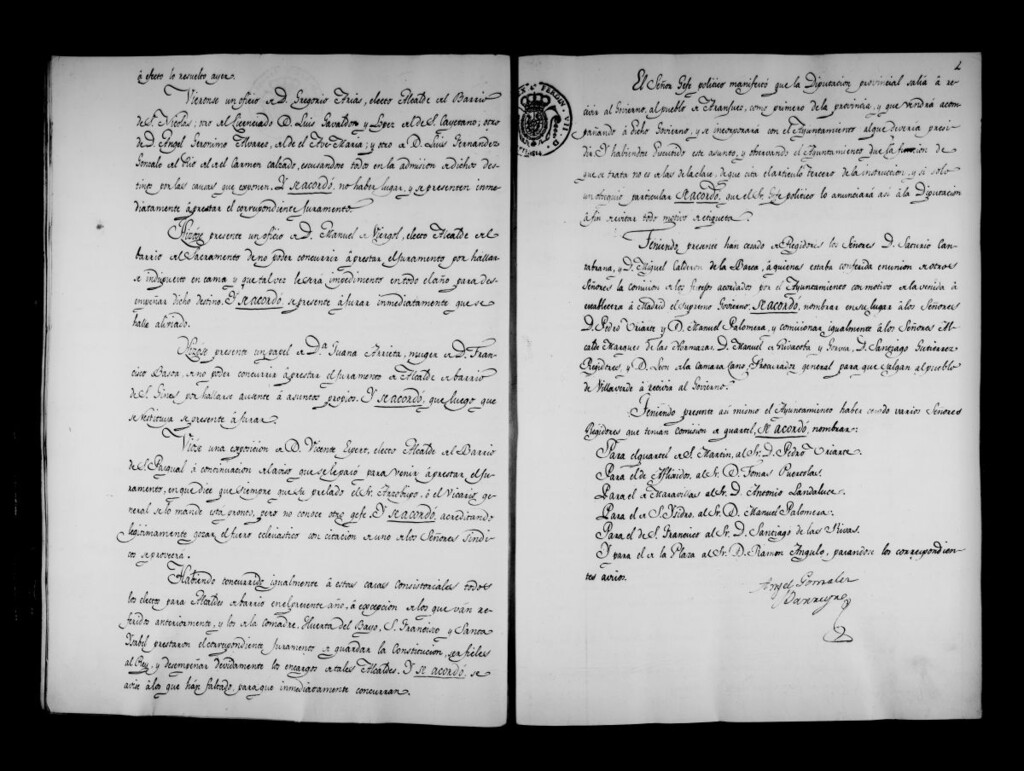 á efecto lo resuelto ayer.
Vieronse un oficio de D. Gregorio Arias, electo Alcalde del Barrio
de S. Nicolas; otro del Licenciado D. Luis Gavaldon y Lopez al de S. Cayetano; otro
de D. Angel Geronimo Alvarez, al de el Ave-Maria; y otro de D. Luis Fernandez
Gonzalo del Rio al de el Carmen calzado, escusandose todos en la admision de dichos des-
tinos por las causas que exponen. Y se acordó, no haber lugar, y se presenten inme-
diatamente á prestar el correspondiente juramento.
Hizose presente un oficio de D. Manuel de Viergol, electo Alcalde del
barrio del Sacramento de no poder concurrir á prestar el juramento por hallar-
se indispuesto en cama y que tal vez le será impedimento en todo el año para des-
empeñar dicho destino. Y se acordó se presente á jurar inmediatamente que se
halle aliviado.
Hizose presente un papel de D.ª Juana Arrieta, muger de D. Fran-
cisco Basca, de no poder concurrir á prestar el juramento de Alcalde de barrio
de S. Gines por hallarse ausente á asuntos propios. Y se acordó, que luego que
se restituya se presente á jurar.
Viose una exposicion de D. Vicente Espert, electo Alcalde del Barrio
de S. Pasqual á continuacion del aviso que se le pasó para venir á prestar el ju-
ramento, en que dice que siempre que su prelado el Sr. Arzobispo, ó el Vicario ge-
neral se lo mande está pronto, pero no conoce otro gefe. Y se acordó, acreditando
legitimamente gozar el fuero eclesiastico con citacion de uno de los Señores Sindi-
cos se proveerá.
Habiendo concurrido igualmente á estas casas consistoriales todos
los electos para Alcaldes de barrio en el presente año, á excepcion de los que ván re-
feridos anteriormente, y los de la Comadre, Huerta del Bayo, S. Francisco y Santa
Isabel prestaron el correspondiente juramento de guardar la Constitucion, ser fieles
al Rey, y desempeñar devidamente los encargos de tales Alcaldes. Y se acordó, se
avise á los que han faltado, para que inmediatamente concurran.
2
El Señor Gefe politico manifestó que la Diputacion provincial salia á re-
civir al Govierno, al pueblo de Aranjuez, como primero de la provincia, y que vendrá acom-
pañando á dicho Govierno, y se incorporará con el Ayuntamiento al que deveria presi-
dir. Y habiendose discutido este asunto, y observando el Ayuntamiento que la funcion de
que se trata no es de las de la clase, de que cita el articulo tercero de la instruccion, y si solo
un obsequio particular Se acordó, que el Sr. Gefe politico lo anunciará asi á la Diputacion
á fin de evitar todo motivo de etiqueta.
Teniendo presente han cesado de Regidores los Señores D. Saturio Can-
tabrana, y D. Miguel Calderon de la Barca, á quienes estaba conferida en union de otros
Señores la comision de los festejos acordados por el Ayuntamiento con motivo de la venida á
establecerse á Madrid el supremo Govierno; Se acordó, nombrar en su lugar á los Señores
D. Pedro Uriarte y D. Manuel Palomera, y comisionar igualmente á los Señores Al-
calde Marques de las Hormazas, D. Manuel de Guisasola y D. Santiago Gutierrez
Regidores, y D. Leon de la Camara Cano, Procurador general para que salgan al pueblo
de Villaverde á recivir al Govierno.
Teniendo presente asi mismo el Ayuntamiento haber cesado varios Señores
Regidores que tenian comision de quartel, Se acordó, nombrar:
Para el quartel de S. Martin, al Sr. D. Pedro Uriarte.
Para el de Afligidos, al Sr. D. Tomas Puertolas.
Para el de Maravillas al Sr. D. Antonio Landaluce.
Para el de S. Isidro, al Sr. D. Manuel Palomera.
Para el de S. Francisco al Sr. D. Santiago de las Rivas.
Y para el de la Plaza al Sr. D. Ramon Angulo, pasandose los correspondien-
tes avisos.
Angel Gonzalez
Barreyro